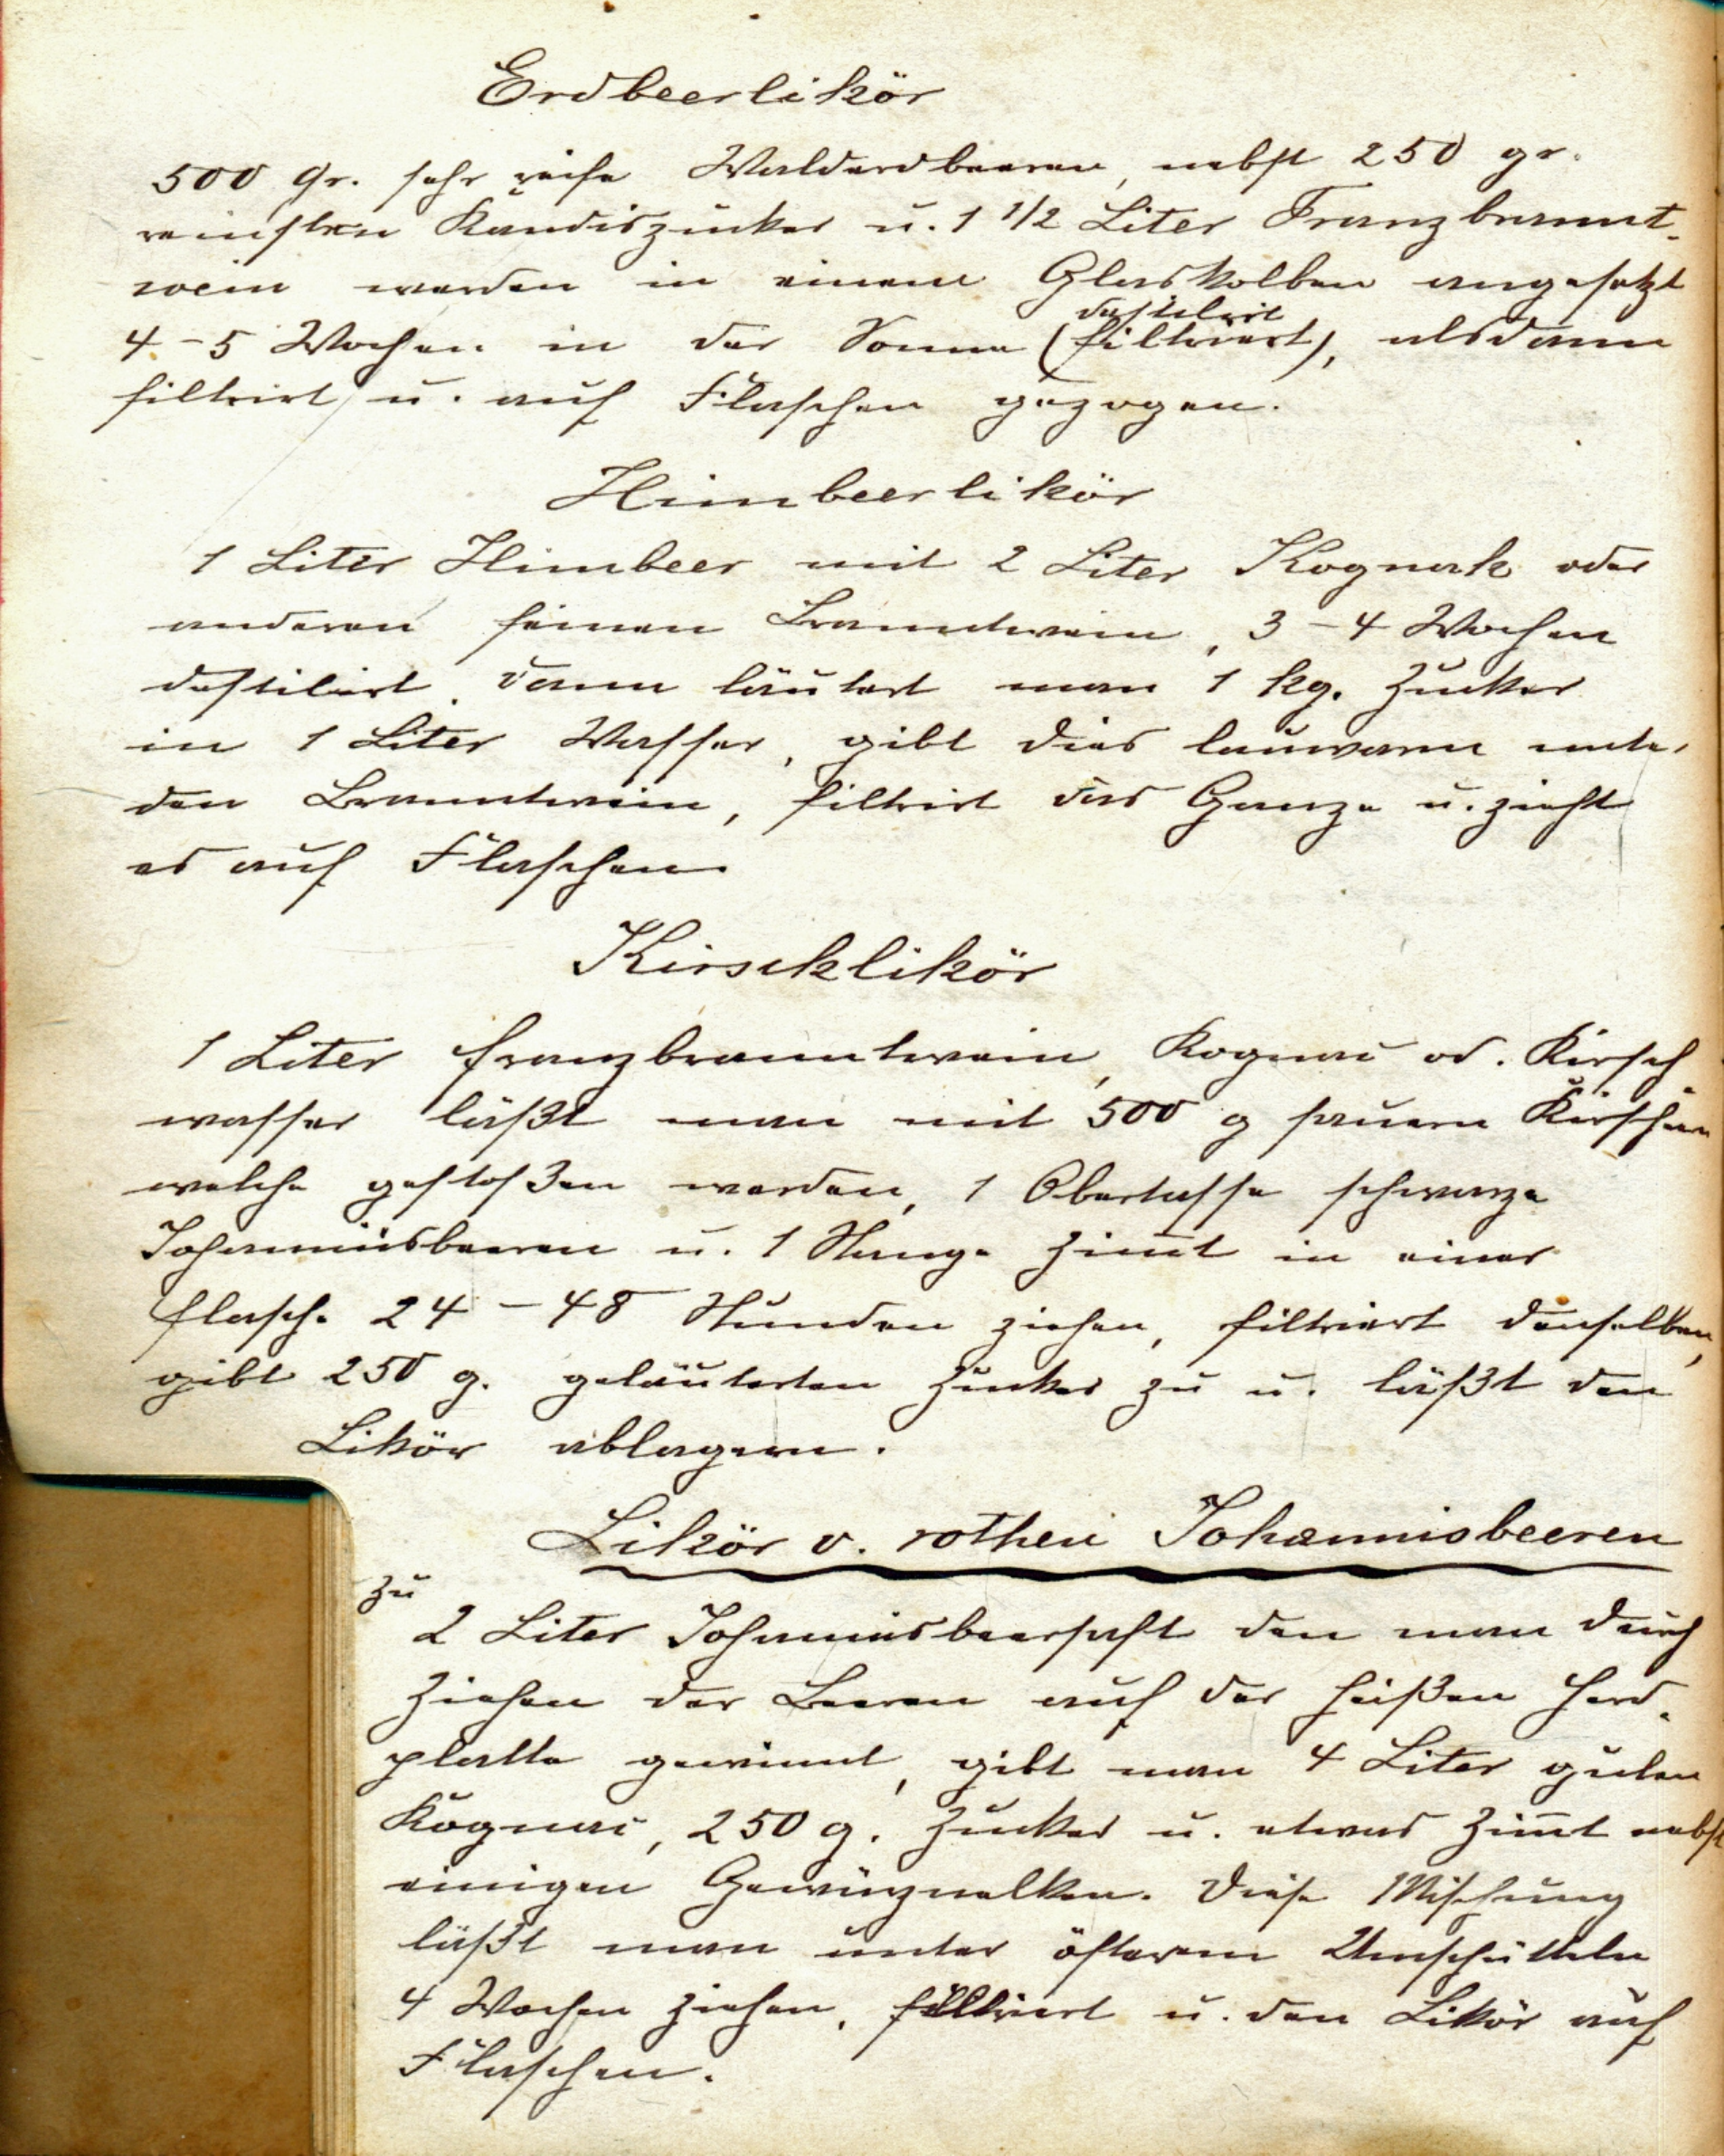 Erdbeerlikör
500 Gr. sehr reife Walderdbeeren, nebst 250 gr.
reinsten Kandiszucker u. 1 1/2 Liter Franzbrannt-
wein werden in einem Glaskolben angesetzt
destilirt
4-5 Wochen in der Sonne (filtriert), alsdann
filtrirt u. auf Flaschen gezogen.
Himbeerlikör
1 Liter Himbeer mit 2 Liter Kognak oder
anderen feinen Branntwein, 3-4 Wochen
destilirt. Dann läutert man 1 kg. Zucker
in 1 Liter Wasser, gibt dies lauwarm unter
den Branntwein, filtrirt das Ganze u. zieht
es auf Flaschen.
Kirschlikör
1 Liter Franzbranntwein, Kognac od. Kirsch
wasser läßt man mit 500 g sauern Kirschen
welche gestoßen werden, 1 Obertasse schwarze
Johannisbeeren u. 1 Stange Zimt in einer
Flasche 24-48 Stunden ziehen, filtriert denselben,
gibt 250 g. geläuterten Zucker zu u. läßt den
Likör ablagern.
Likör v. rothen Johannisbeeren
zu
2 Liter Johannisbeersaft den man durch
Ziehen der Beeren auf der heißen Herd-
platte gewinnt, gibt man 4 Liter guten
Kognac, 250 g. Zucker u. etwas Zimt nebst
einigen Gewürznelken. Diese Mischung
läßt man unter öfterem Umschütteln
4 Wochen ziehen, filtriert u. den Likör auf
Flaschen.